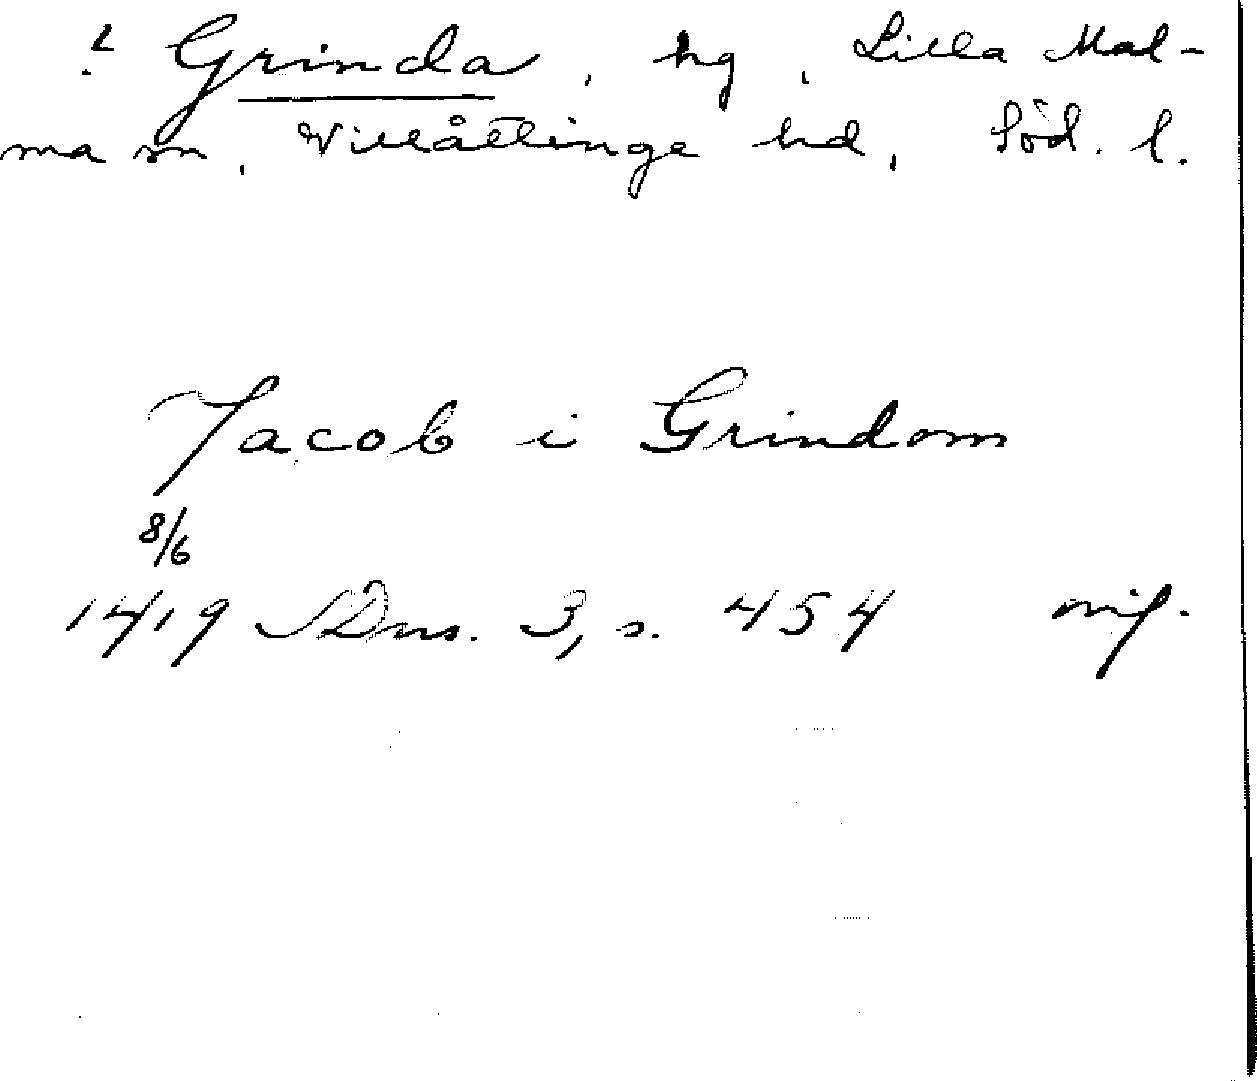 ? Grinda, hg, Lilla Mal-
ma sn, Villåttinge hd, Söd. l.
Jacob i Grindom
8/6
1419 SDns. 3, s. 454 orig.